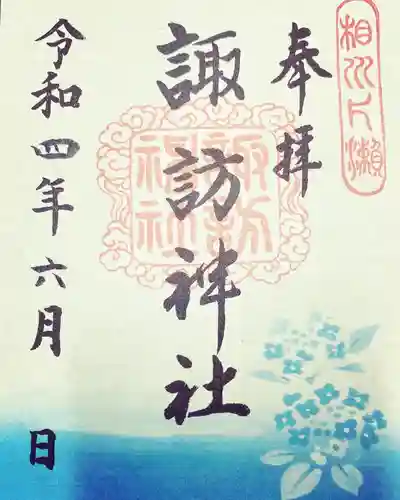 奉拝
諏訪神社
令和四年六月 日
相州片瀬
諏訪神社